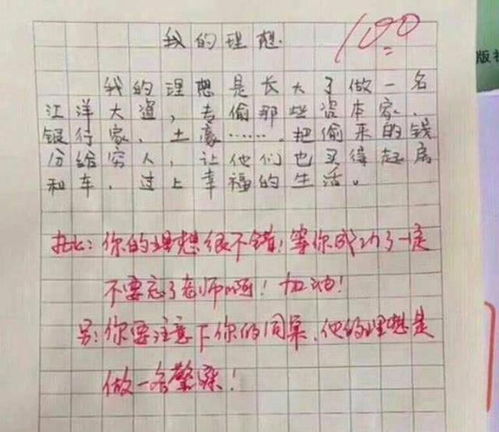 我的理想.
100
我的理想是长大了做一名
江洋大盗，专偷那些资本家、
银行家、土豪……. 把偷来的钱
分给穷人，让他们也买得起房
和车，过上幸福的生活。
批：你的理想很不错！等你成功了一定
不要忘了老师啊！加油！
另：你要注意下你的同桌，他的理想是
做一名警察！
版社